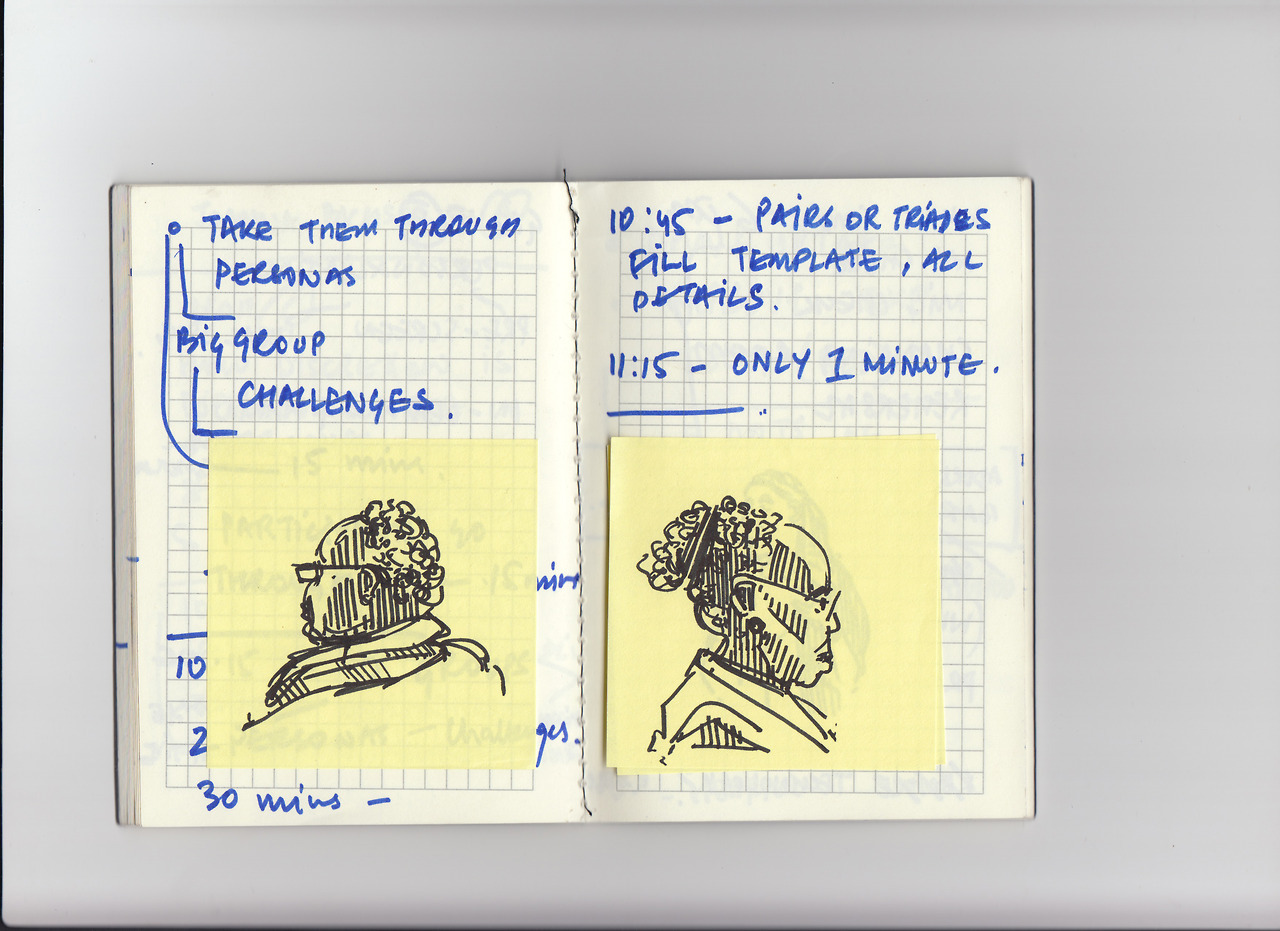 TAKE THEM THROUGH
PERSONAS
BIG GROUP
CHALLENGES.
15 mins.
PARTICI GO
THROU - 15 mins
10 15
2 PERSONAS - Challenges.
30 mins -
10:45 - PAIRS OR TRIADES
FILL TEMPLATE, ALL
DETAILS.
11:15 - ONLY 1 MINUTE.